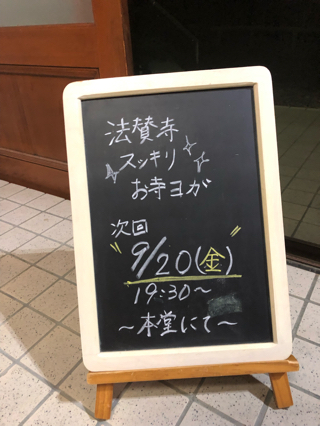 法賛寺
スッキリ
お寺ヨガ
次回
9/20(金)
19:30〜
〜本堂にて〜